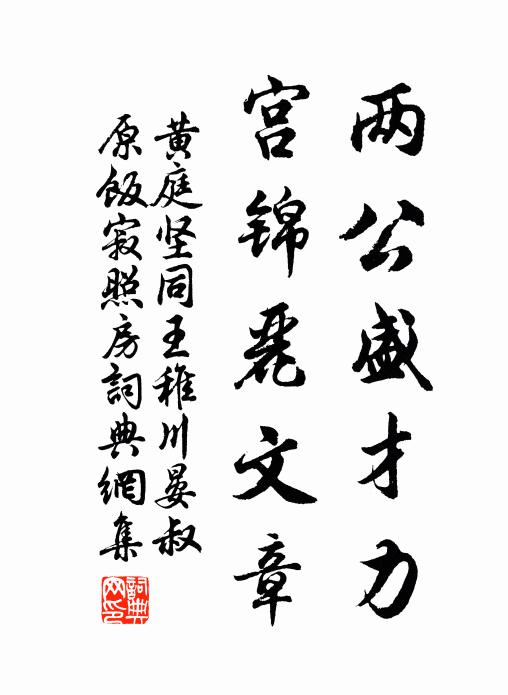 两公盛才力
宫锦丽文章
黄庭坚同王稚川晏叔
原饭寂照房詞典網集
詞典网印